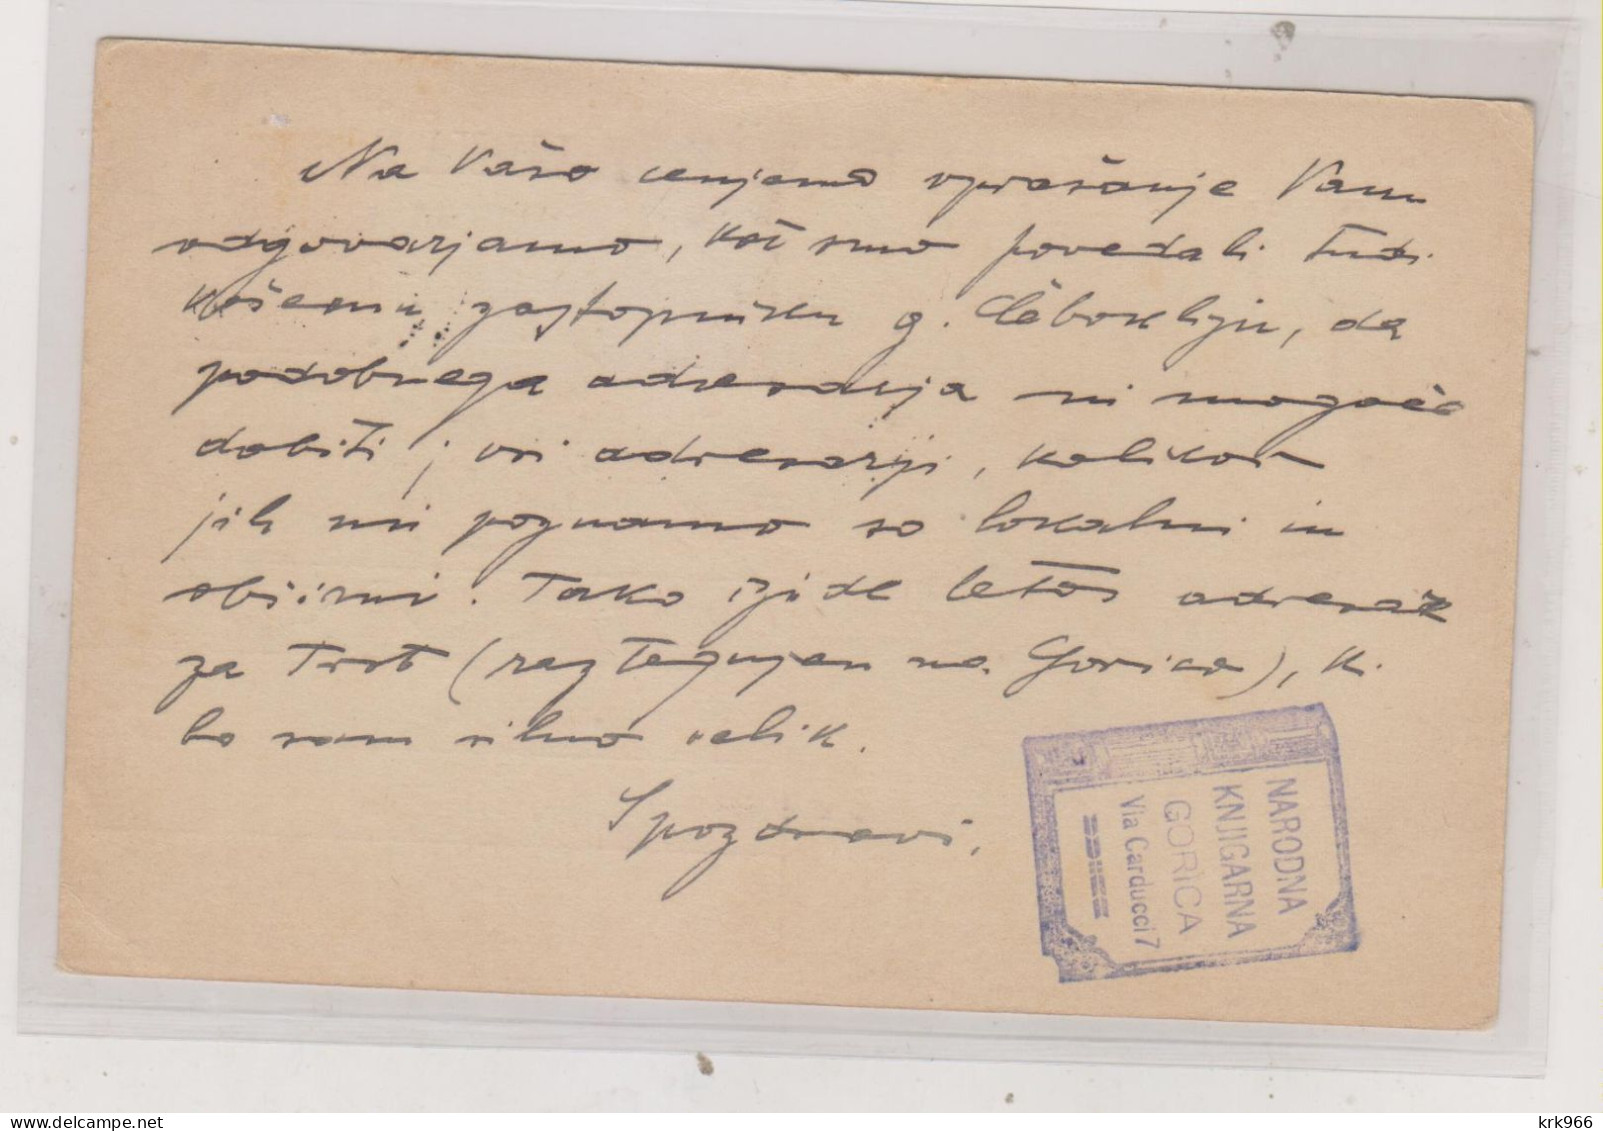 Na Vašo cenjeno vprašanje Vam
odgovarjamo, kot smo povedali tudi
zastopniku g.
da
podobnega adresarja ni mogoče
dobiti; vsi adresarji, kolikor
jih mi poznamo so lokalni in
obširni. Tako izide letos adresar
za Trst (raztegnjen na Gorico), ki
bo sam silno velik.
Spozdravi,
NARODNA
KNJIGARNA
GORICA
Via Carducci 7
krk966